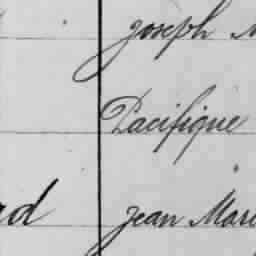 Joseph M
Pacifique
rd Jean Mari